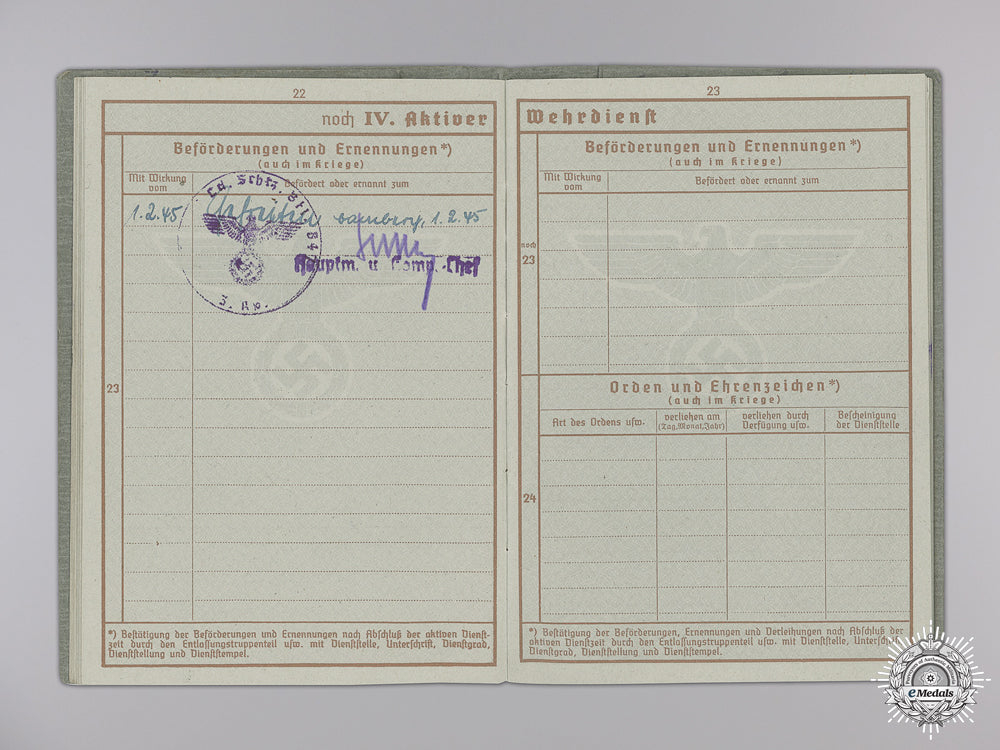 22
noch IV. Aktiver
Beförderungen und Ernennungen*)
(auch im Kriege)
Mit Wirkung vom
Befördert oder ernannt zum
1.2.45 Bamberg, 1.2.45
Ld. Schtz.
3. Kp.
Hauptm. u. Komp.-Chef
23
*) Bestätigung der Beförderungen und Ernennungen nach Abschluß der aktiven Dienst-
zeit durch den Entlassungstruppenteil usw. mit Dienststelle, Unterschrift, Dienstgrad,
Dienststellung und Dienststempel.
23
Wehrdienst
Beförderungen und Ernennungen*)
(auch im Kriege)
Mit Wirkung vom
Befördert oder ernannt zum
noch
23
Orden und Ehrenzeichen*)
(auch im Kriege)
Art des Ordens usw.
verliehen am
(Tag, Monat, Jahr)
verliehen durch
Verfügung usw.
Bescheinigung
der Dienststelle
24
*) Bestätigung der Beförderungen, Ernennungen und Verleihungen nach Abschluß der
aktiven Dienstzeit durch den Entlassungstruppenteil usw. mit Dienststelle, Unterschrift,
Dienstgrad, Dienststellung und Dienststempel.
eMedals